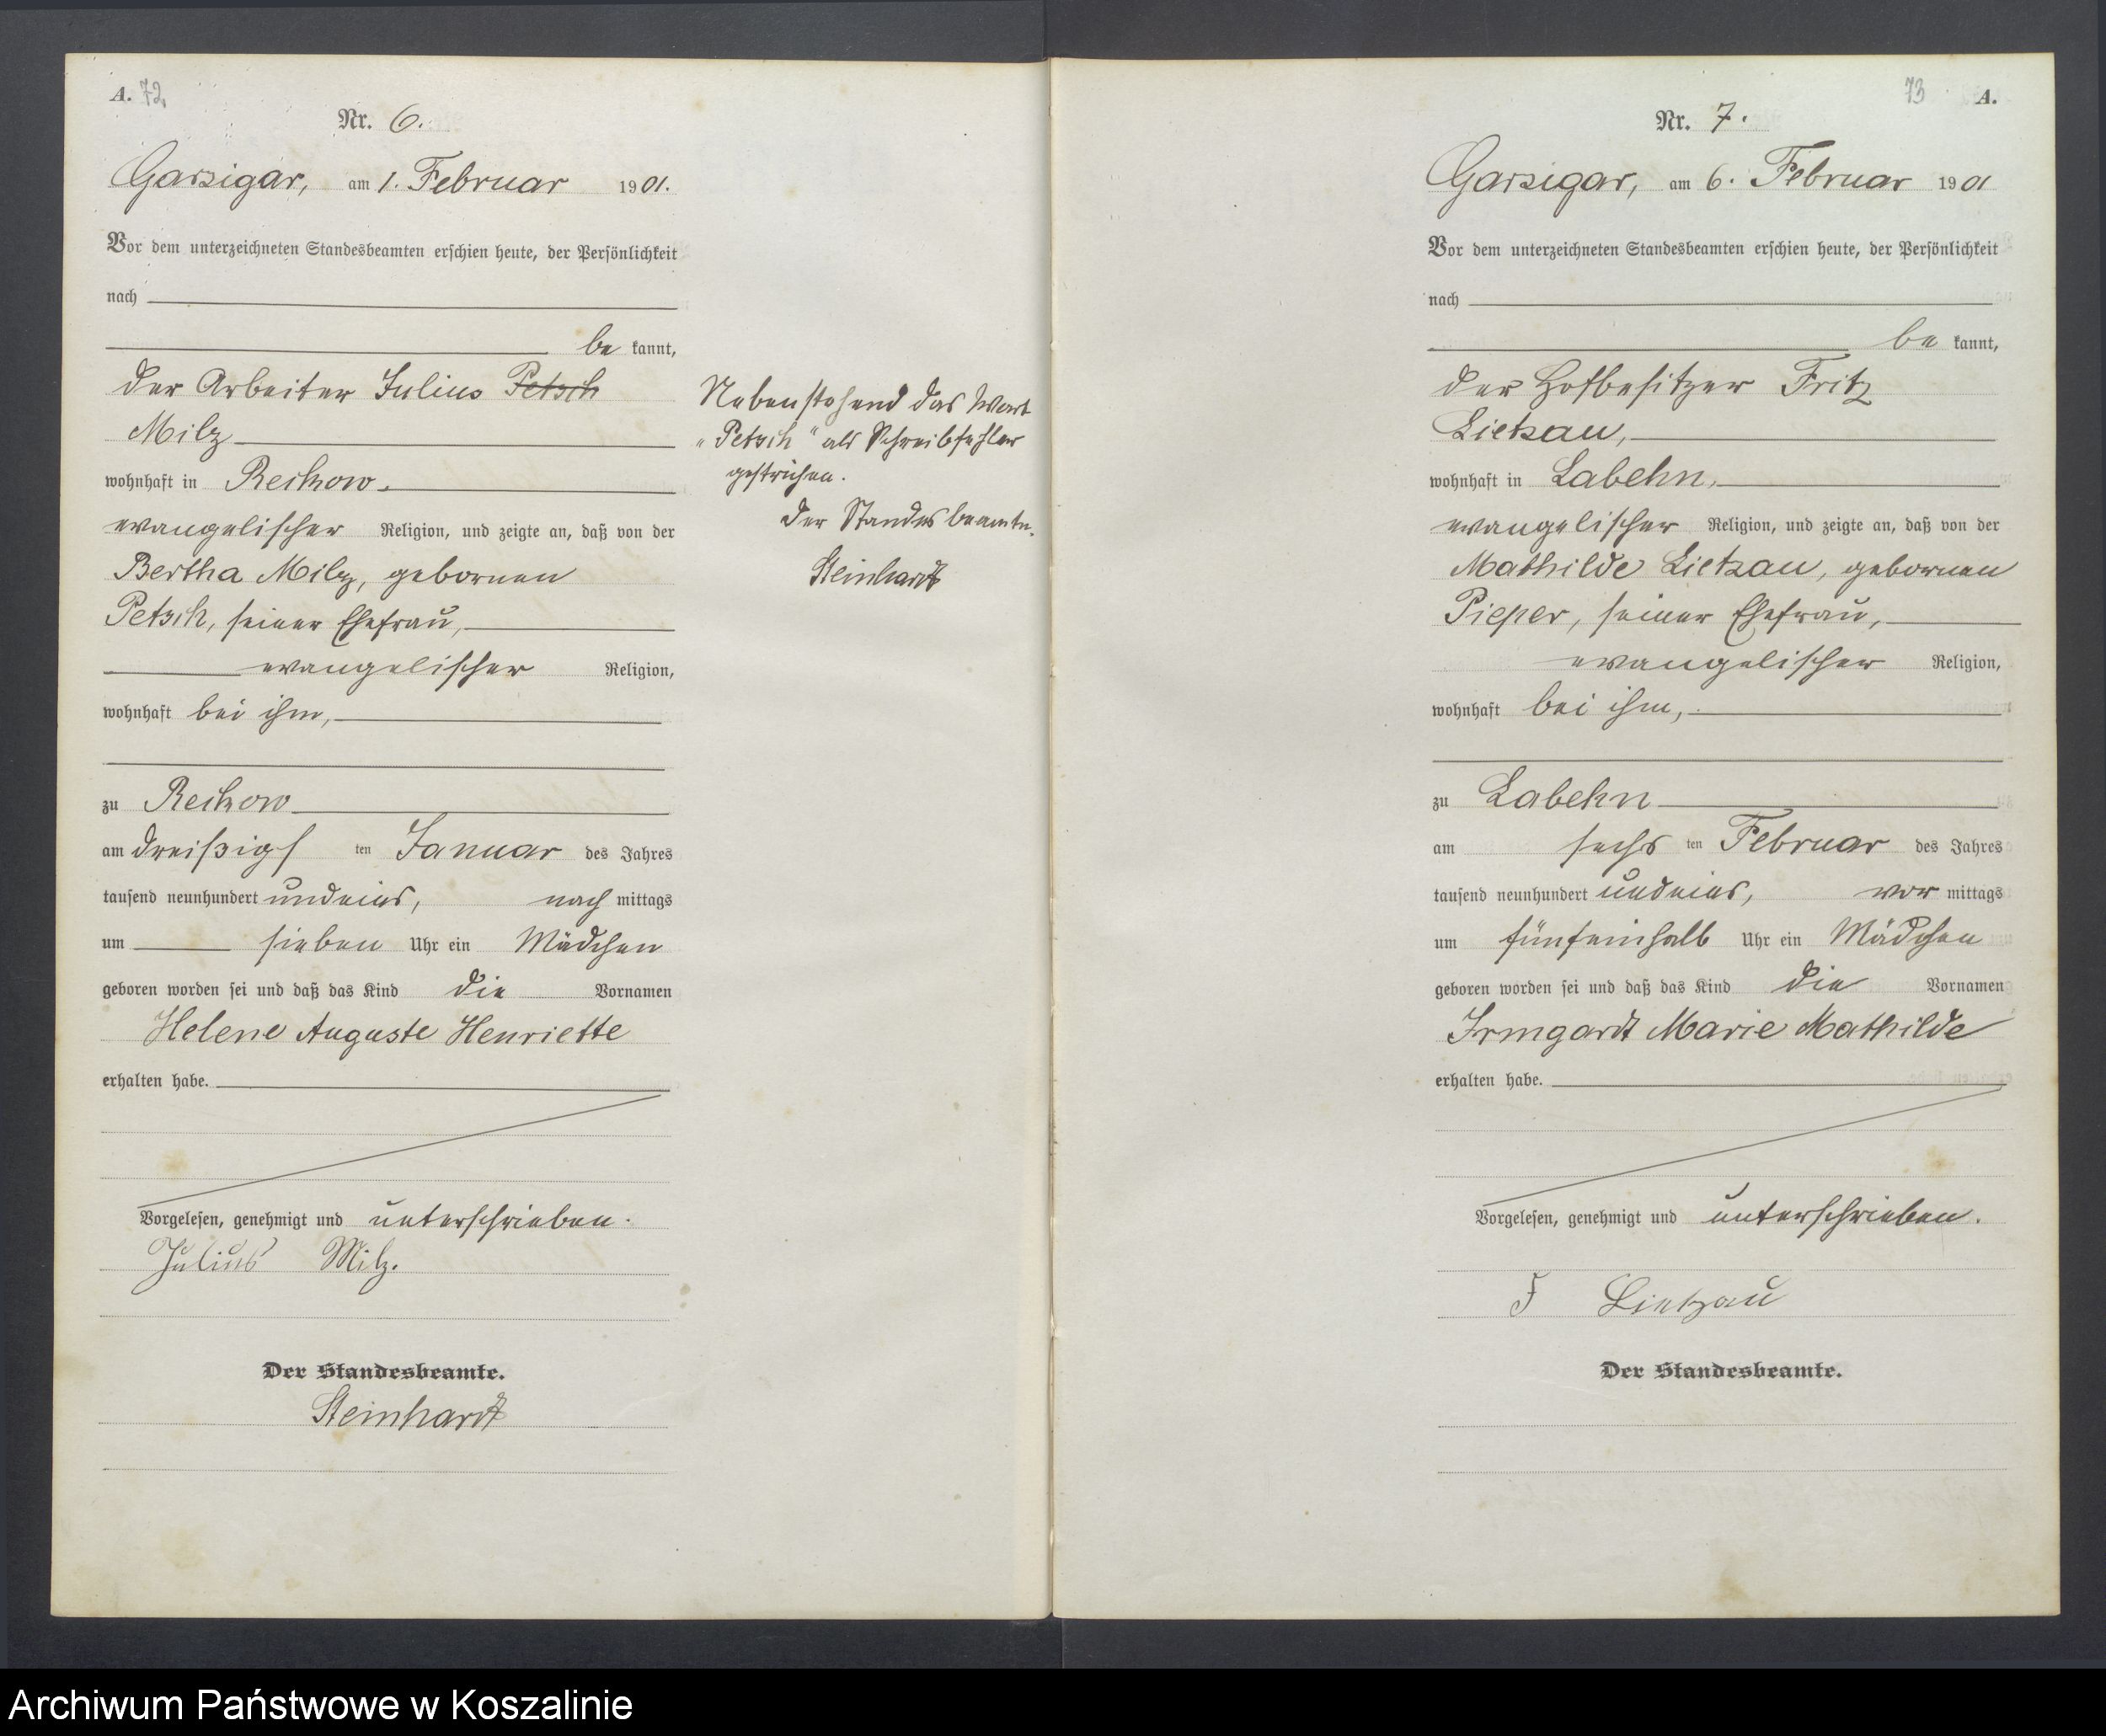 A. 72.
Nr. 6.
Garzigar, am 1. Februar 1901.
Vor dem unterzeichneten Standesbeamten erschien heute, der Persönlichkeit
nach
be kannt,
der Arbeiter Julius Petsch
Milz
wohnhaft in Reckow,
evangelischer Religion, und zeigte an, daß von der
Bertha Milz, gebornen
Petsch, seiner Ehefrau,
evangelischer Religion,
wohnhaft bei ihm,
zu Reckow
am dreißigs ten Januar des Jahres
tausend neunhundert undeins, nach mittags
um sieben Uhr ein Mädchen
geboren worden sei und daß das Kind die Vornamen
Helene Auguste Henriette
erhalten habe.
Vorgelesen, genehmigt und unterschrieben.
Julius Milz.
Der Standesbeamte.
Steinhardt
Nebenstehend das Wort
„Petsch" als Schreibfehler
gestrichen.
Der Standesbeamte.
Steinhardt
73 A.
Nr. 7.
Garzigar, am 6. Februar 1901
Vor dem unterzeichneten Standesbeamten erschien heute, der Persönlichkeit
nach
be kannt,
der Hofbesitzer Fritz
Lietzau,
wohnhaft in Labehn,
evangelischer Religion, und zeigte an, daß von der
Mathilde Lietzau, gebornen
Pieper, seiner Ehefrau,
evangelischer Religion,
wohnhaft bei ihm,
zu Labehn
am sechs ten Februar des Jahres
tausend neunhundert undeins, vor mittags
um fünfeinhalb Uhr ein Mädchen
geboren worden sei und daß das Kind die Vornamen
Irmgardt Marie Mathilde
erhalten habe.
Vorgelesen, genehmigt und unterschrieben.
F Lietzau
Der Standesbeamte.
Archiwum Państwowe w Koszalinie